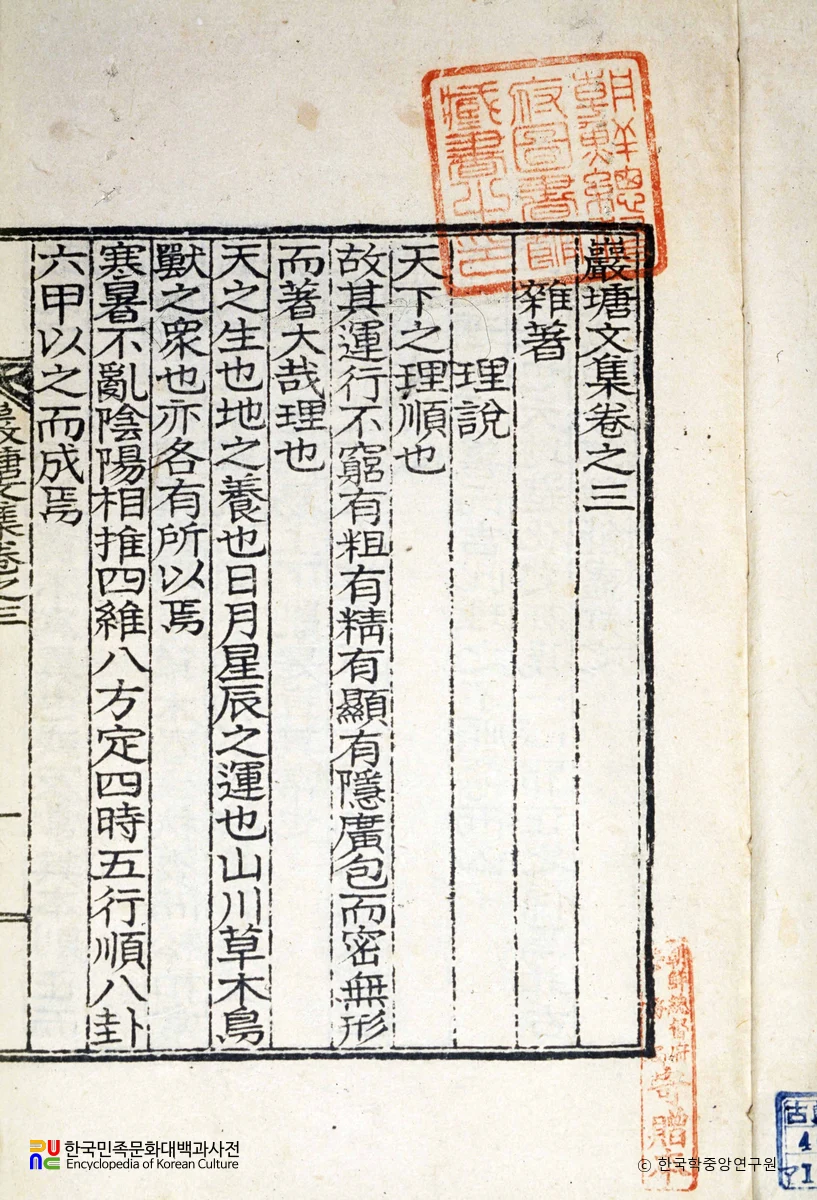 巖塘文集卷之三
雜著
理說
天下之理順也
故其運行不窮有粗有精有顯有隱廣包而密無形
而著大哉理也
天之生也地之養也日月星辰之運也山川草木鳥
獸之衆也亦各有所以焉
寒暑不亂陰陽相推四維八方定四時五行順八卦
六甲以之而成焉
巖塘文集卷之三
朝鮮總督
府圖書館
藏書之印
朝鮮總督府
寄贈本
古
4
한국민족문화대백과사전
Encyclopedia of Korean Culture
© 한국학중앙연구원